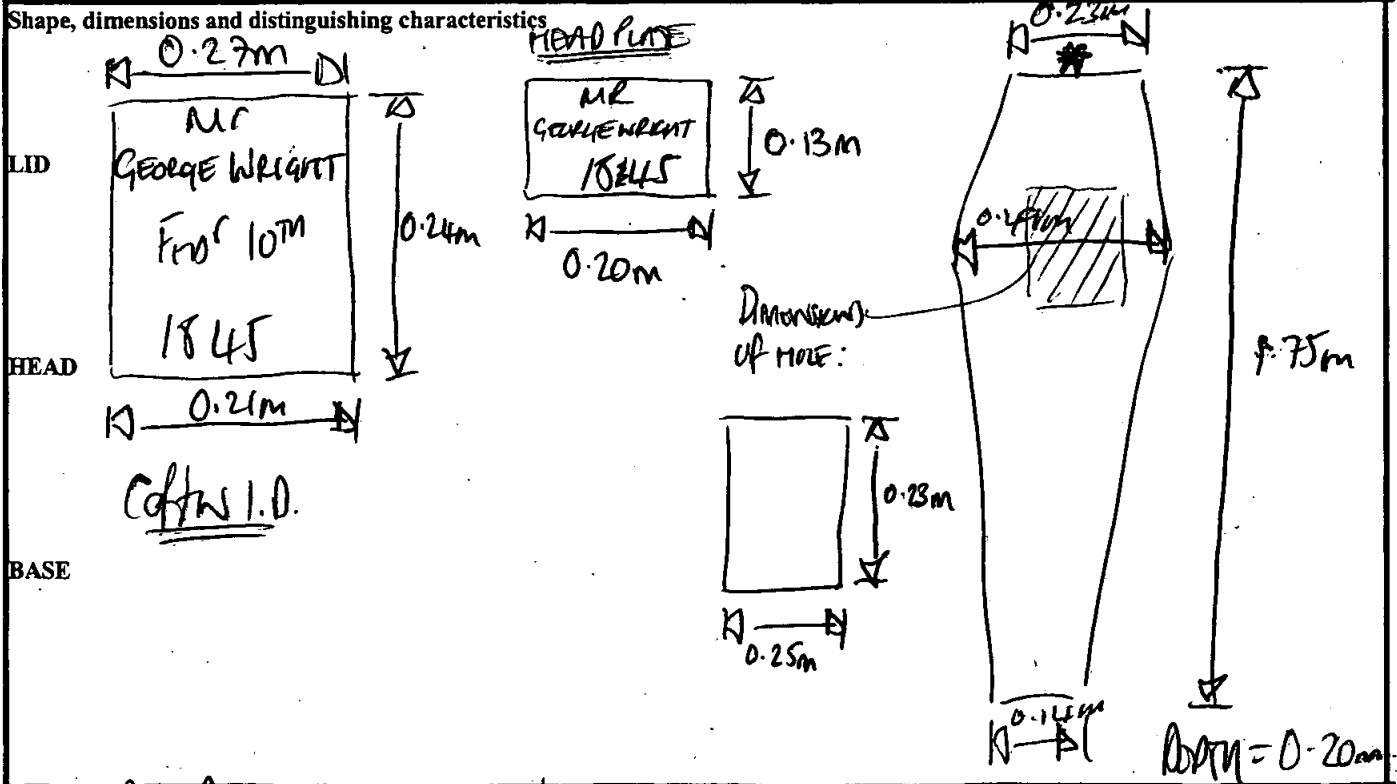 Shape, dimensions and distinguishing characteristics
0.27m
Mr
GEORGE WRIGHT
10TH
1845
0.24m
0.21m
COFFIN I.D.
LID
HEAD
BASE
HEAD PLATE
MR
GEORGE WRIGHT
1845
0.13m
0.20m
DIMENSIONS
OF HOLE:
0.23m
0.25m
0.23m
.75m
DEPTH = 0.20m